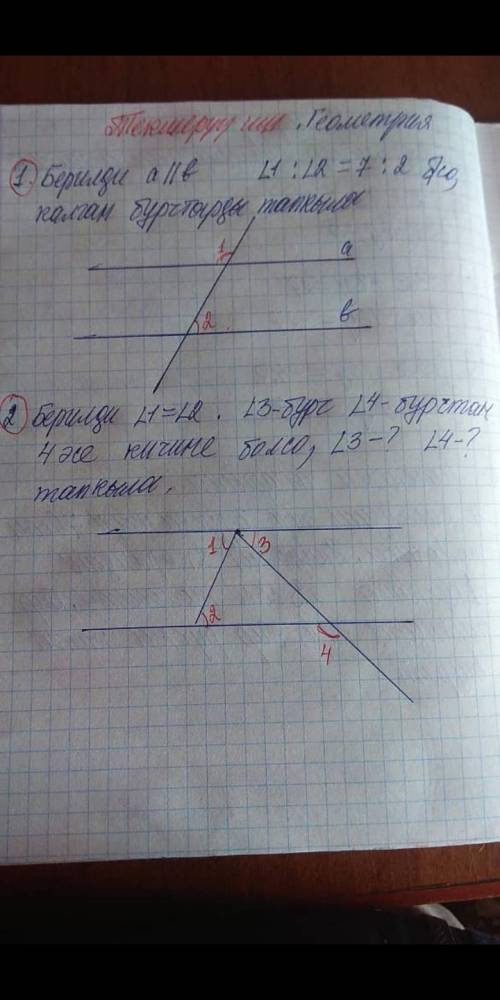 Текшерүү иш. Геометрия
1. Берилди a || b ∠1 : ∠2 = 7 : 2 б/со,
калган бурчтарды тапкыла
1
a
2
b
2 Берилди ∠1=∠2. ∠3-бурч ∠4-бурчтан
4 эсе кичине болсо, ∠3-? ∠4-?
тапкыла.
1 3
2
4